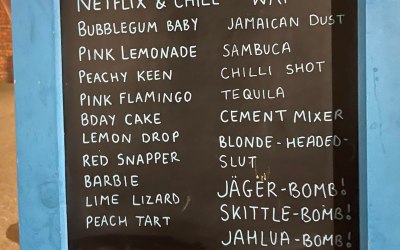 NETFLIX & CHILL
BUBBLEGUM BABY
PINK LEMONADE
PEACHY KEEN
PINK FLAMINGO
BDAY CAKE
LEMON DROP
RED SNAPPER
BARBIE
LIME LIZARD
PEACH TART
WAP
JAMAICAN DUST
SAMBUCA
CHILLI SHOT
TEQUILA
CEMENT MIXER
BLONDE-HEADED-
SLUT
JÄGER-BOMB!
SKITTLE-BOMB!
JAHLUA-BOMB!